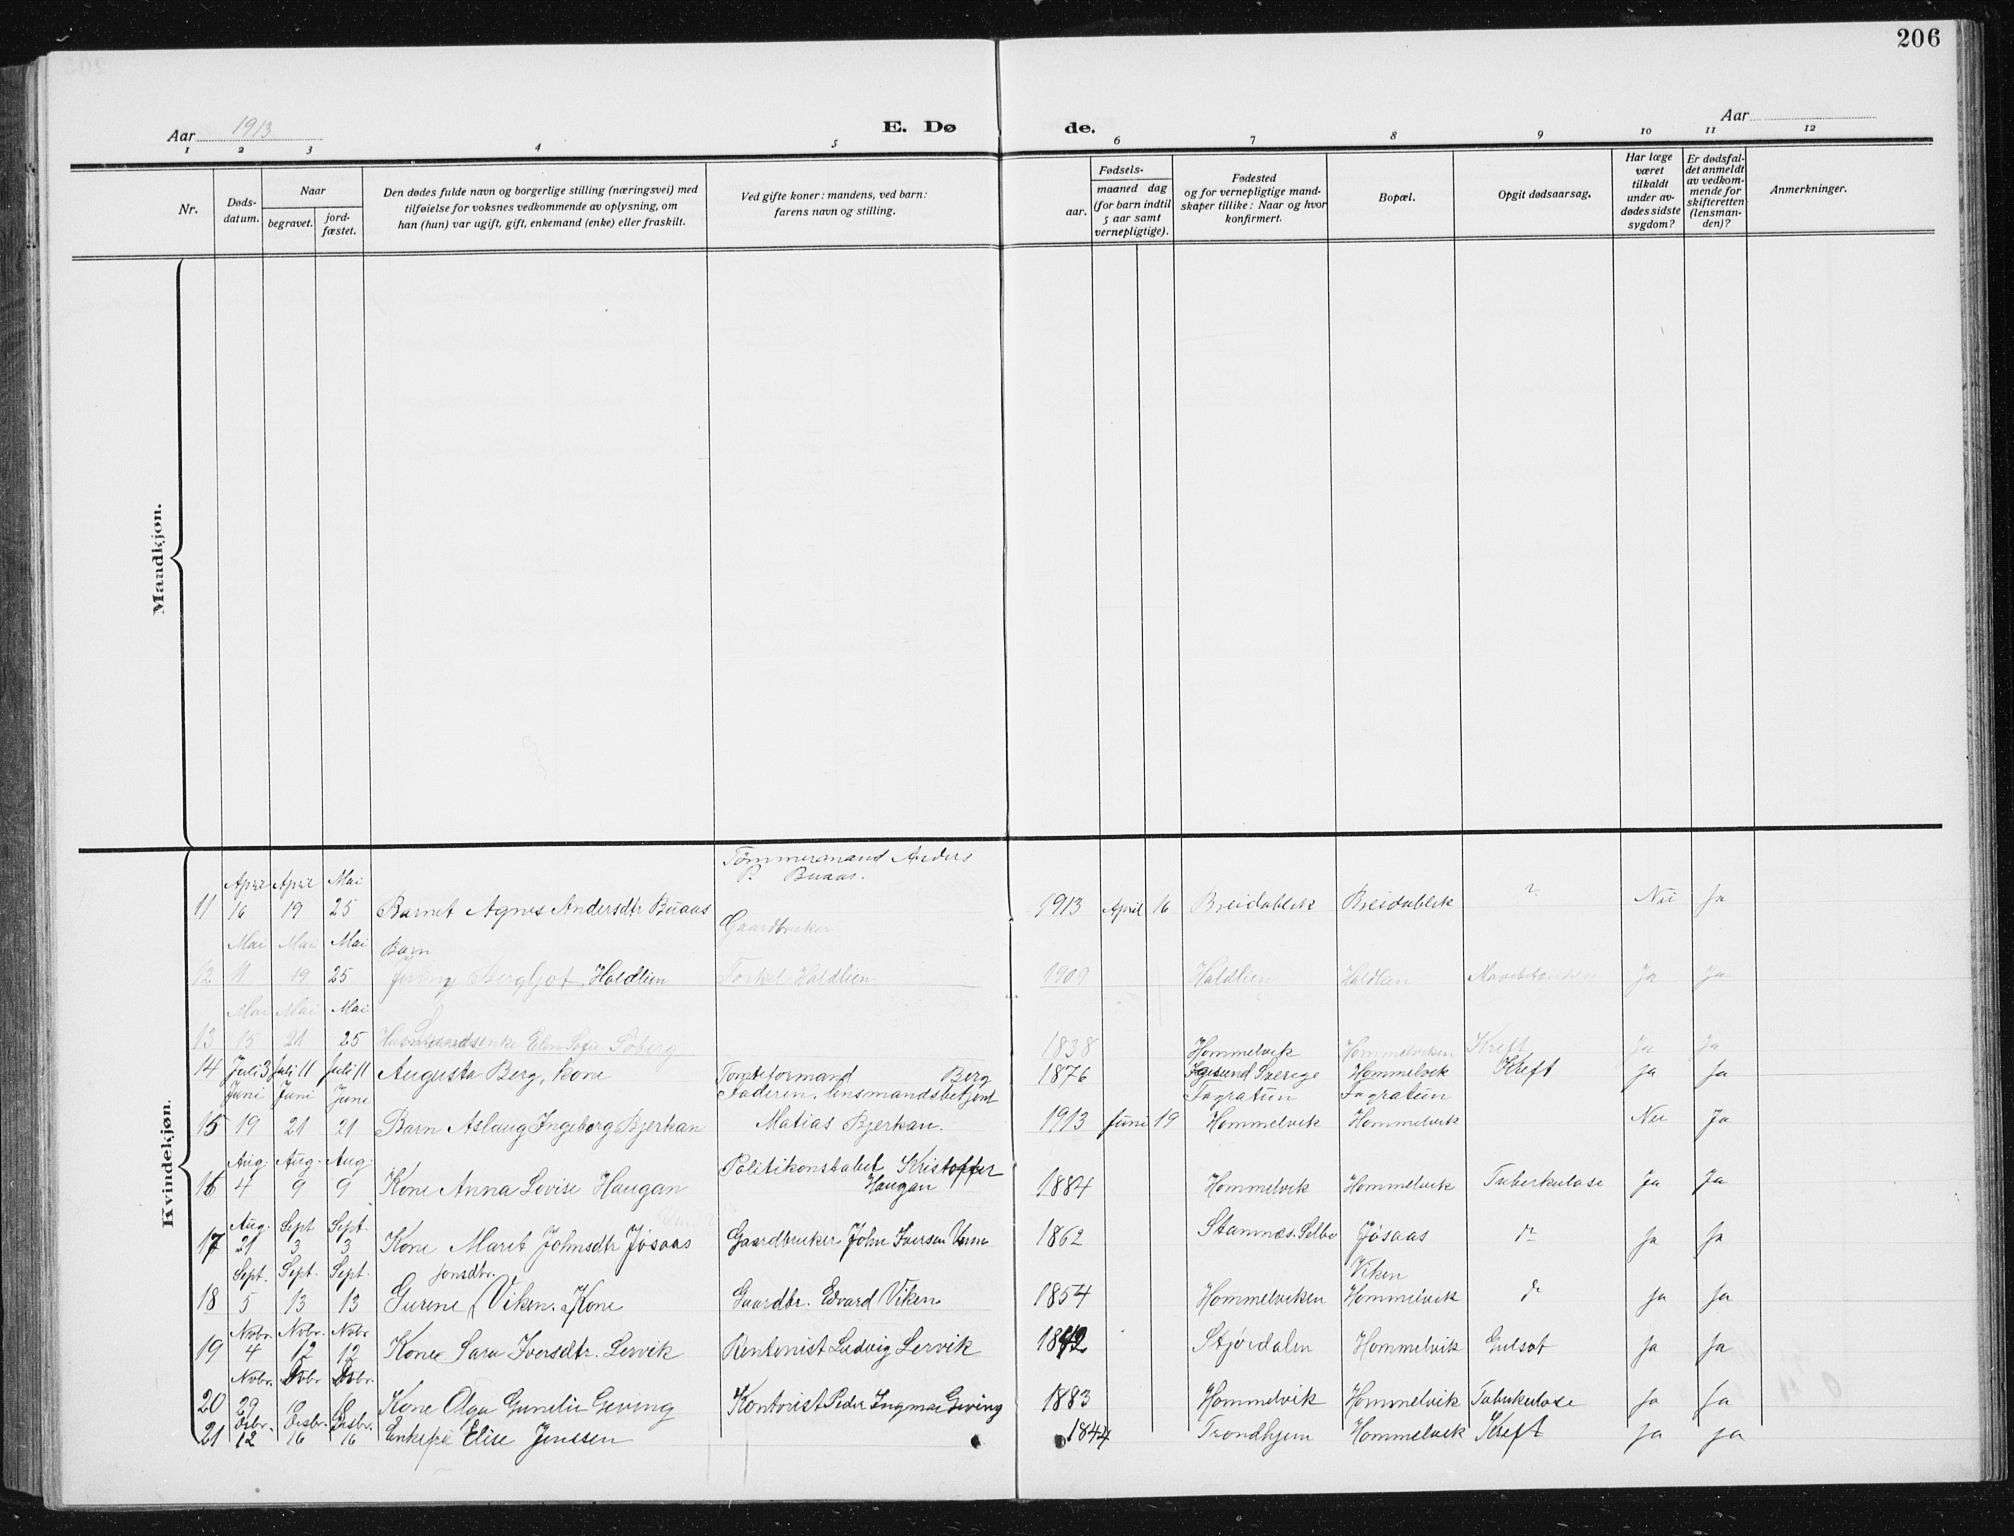 206
Aar 1913
E. Dø
de.
Aar
1 2 3 4 5 6 7 8 9 10 11 12
Nr.
Døds-
datum.
Naar
begravet.
jord-
fæstet.
Den dødes fulde navn og borgerlige stilling (næringsvei) med
tilføielse for voksnes vedkommende av oplysning, om
han (hun) var ugift, gift, enkemand (enke) eller fraskilt.
Ved gifte koner: mandens, ved barn:
farens navn og stilling.
Fødsels-
aar.
maaned dag
(for barn indtil
5 aar samt
vernepligtige).
Fødested
og for vernepligtige mand-
skaper tillike: Naar og hvor
konfirmert.
Bopæl.
Opgit dødsaarsag.
Har læge
været
tilkaldt
under av-
dødes sidste
sygdom?
Er dødsfal-
det anmeldt
av vedkom-
mende for
skifteretten
(lensman-
den)?
Anmerkninger.
Mandkjøn.
Kvindekjøn.
Tømmermand Anders
P. Buaas.
April April Mai
11 16 19 25 Barnet Agnes Andersdtr Buaas 1913 April 16 Breidablik Breidablik ? Nei Ja
Gaardbruker
Mai Mai Mai
Barn
12 11 19 25 Bergljot Haldlien Torkel Haldlien 1909 Haldlien Haldlien Ja Ja
Mai Mai Mai
13 15 21 25 Husmandsenke Elen Sofie Søberg 1838 Hommelvik Hommelviken Kreft Ja Ja
14 Juli 3 Juli 11 Juli 11 Augusta Berg, kone Tomteformand Berg 1876 Sverige Hommelvik Kreft Ja Ja
Juni Juni June
Faderen, lensmandsbetjent
Fagratun Fagratun
15 19 21 21 Barn Aslaug Ingeborg Bjerkan Matias Bjerkan. 1913 Juni 19 Hommelvik Hommelvik Nei Ja
Aug. Aug. Aug.
Politikonstabel Kristoffer
Haugan
16 4 9 9 Kone Anna Lovise Haugan 1884 Hommelvik Hommelvik Tuberkulose Ja Ja
Aug. Sept Sept.
17 21 3 3 Kone Maret Johnsdtr Jøsaas Gaardbruker John Iversen 1862 Stamnes. Selbu Jøsaas do Ja Ja
Sept. Sept. Sept.
Jonsdtr.
Viken
18 5 13 13 Gurene Viken. Kone Gaardbr. Edvard Viken 1854 Hommelviken Hommelvik do Ja Ja
Novbr. Novbr. Novbr
19 4 12 12 Kone Sara Iversdtr. Lervik Rentenist Ludvig Lervik 1842 Stjørdalen Hommelvik Gulsot Ja Ja
Novbr. Dsbr Dsbr.
20 29 9 9 Kone Olga Gunelie Geving Kontorist Peder Ingmar Geving 1883 Hommelvik Hommelvik Tuberkulose Ja Ja
Desbr. Desbr. Desbr.
21 12 16 16 Enkefru Elise Jenssen 1844 Trondhjem Hommelvik Kreft Ja Ja